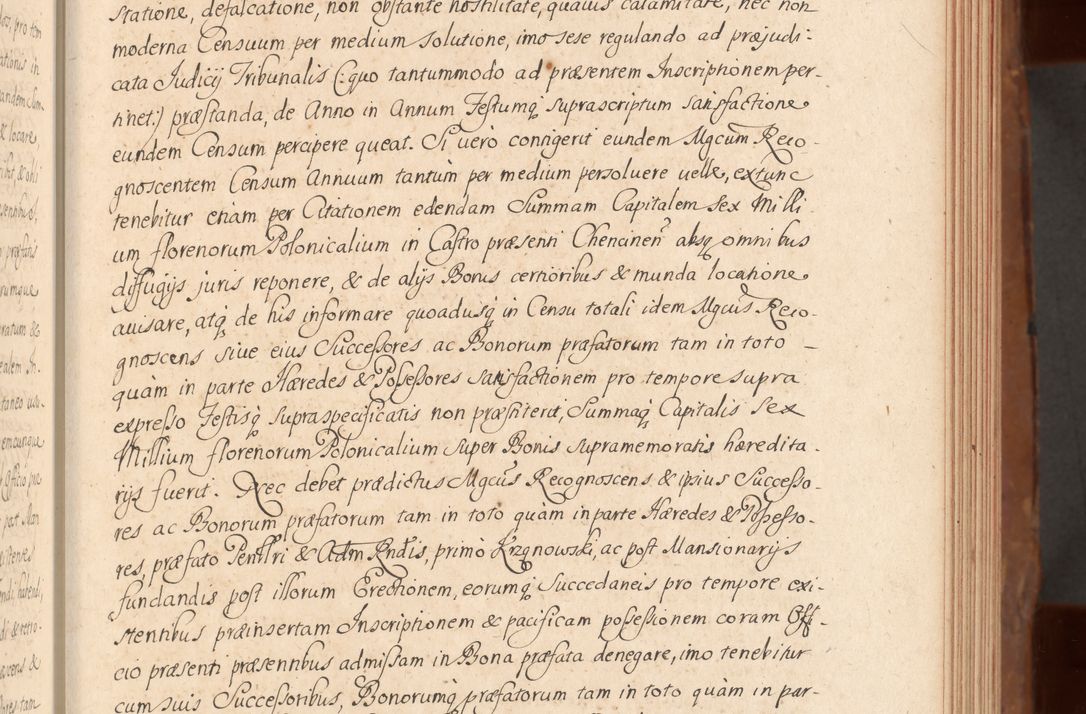 statione, defalcatione, non obstante hostilitate, quavis calamitate, nec non
moderna Censuum per medium solutione, imo sese regulando ad præjudi-
cata Judicij Tribunalis (: quo tantummodo ad præsentem Inscriptionem per-
tinet :) præstanda, de Anno in Annum Festumq suprascriptum satisfactione
eundem Censum percipere queat. Si uerò contigerit eundem Mgcum Reco-
gnoscentem Censum Annuum tantùm per medium persoluere uelle, extunc
tenebitur etiam per Citationem edendam Summam Capitalem Sex Milli
um florenorum Polonicalium in Castro præsenti Chencinen absq omnibus
diffugijs juris reponere, & de alijs Bonis certioribus & munda locatione
auisare, atq de his informare quoadusq in Censu totali idem Mgcus Reco-
gnoscens siue eius Successores ac Bonorum præfatorum tam in toto
quàm in parte Hæredes & Possessores satisfactionem pro tempore supra
expresso Festisq supraspecificatis non præstiterit, Summaq Capitalis Sex
Millium florenorum Polonicalium super Bonis supramemoratis hæredita-
rijs fuerit. Nec debet prædictus Mgcus Recognoscens & ipsius Successo-
res ac Bonorum præfatorum tam in toto quàm in parte Hæredes & Possesso-
res, præfato Pentlri & Adm Rndis, primò Krzanowski, ac post Mansionarijs
fundandis post illorum Erectionem, eorumq Succedaneis pro tempore exi-
stentibus præinsertam Inscriptionem & pacificam possessionem coram Offi-
cio præsenti præsentibus admissam in Bona præfata denegare, imo tenebitur
cum suis Successoribus, Bonorumq præfatorum tam in toto quàm in par-